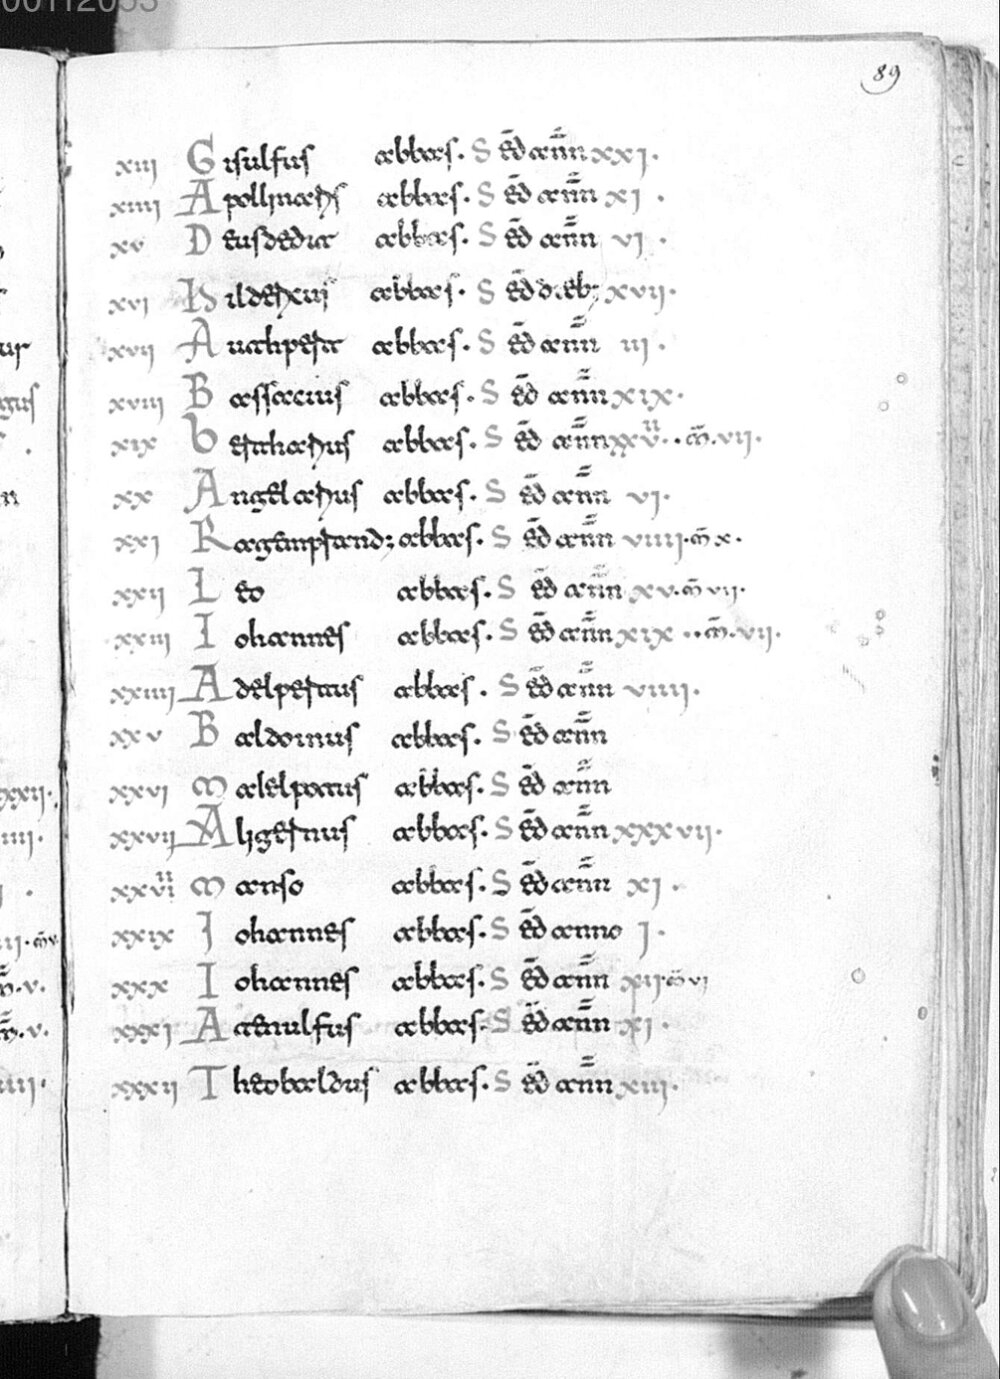 89
xiii Gisulfus abbas. Sed̄ ann̄ xxi.
xiiii Apollinaris abbas. Sed̄ ann̄ xi.
xv Deusdedit abbas. Sed̄ ann̄ vi.
xvi Hildericus abbas. Sed̄ dieb; xvii.
xvii Authpert abbas. Sed̄ ann̄ iii.
xviii Bassacius abbas. Sed̄ ann̄ xix.
xix Bertharius abbas. Sed̄ ann̄ xxvii..m̄.vii.
xx Angelarius abbas. Sed̄ ann̄ vi.
xxi Ragemprand; abbas. Sed̄ ann̄ viiii.m̄ x.
xxii Leo abbas. Sed̄ ann̄ xv.m̄ vii.
xxiii Iohannes abbas. Sed̄ ann̄ xix..m̄.vii.
xxiiii Adelpertus abbas. Sed̄ ann̄ viiii.
xxv Baldoinus abbas. Sed̄ ann̄
xxvi Maielpotus abbas. Sed̄ ann̄
xxvii Aligernus abbas. Sed̄ ann̄ xxxvii.
xxviii Manso abbas. Sed̄ ann̄ xi.
xxix Iohannes abbas. Sed̄ anno i.
xxx Iohannes abbas. Sed̄ ann̄ xii.m̄ vi
xxxi Atenulfus abbas. Sed̄ ann̄ xi.
xxxii Theobaldus abbas. Sed̄ ann̄ xiii.